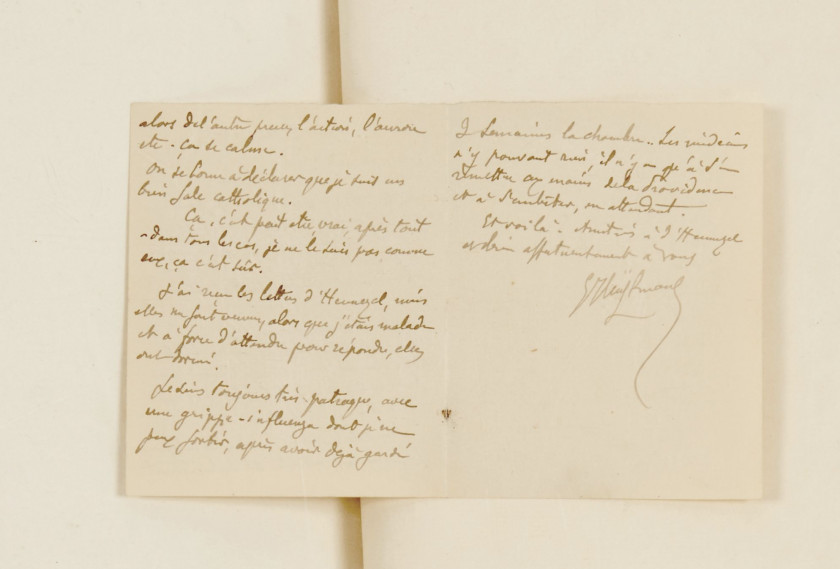 alors de l'autre prend l'action, l'aurore
etc. ça se calme.
On se borne à déclarer que je suis un
bien sale catholique.
Ça, c'est peut être vrai, après tout
- dans tous les cas, je ne le suis pas comme
eux, ça c'est sûr.
J'ai reçu les lettres d'Hennezel, mais
elles me sont venues, alors que j'étais malade
et à force d'attendre pour répondre, elles
ont
Je suis toujours très patraque, avec
une grippe - influenza dont je ne
peux sortir, après avoir déjà gardé
3 semaines la chambre.. Les médecins
n'y pouvant rien, il n'y a qu'à s'en
remettre aux mains de la Providence
et à s'embêter, en attendant.
Et voilà - Amitiés à d'Hennezel
et bien affectueusement à vous
GJ Huysmans